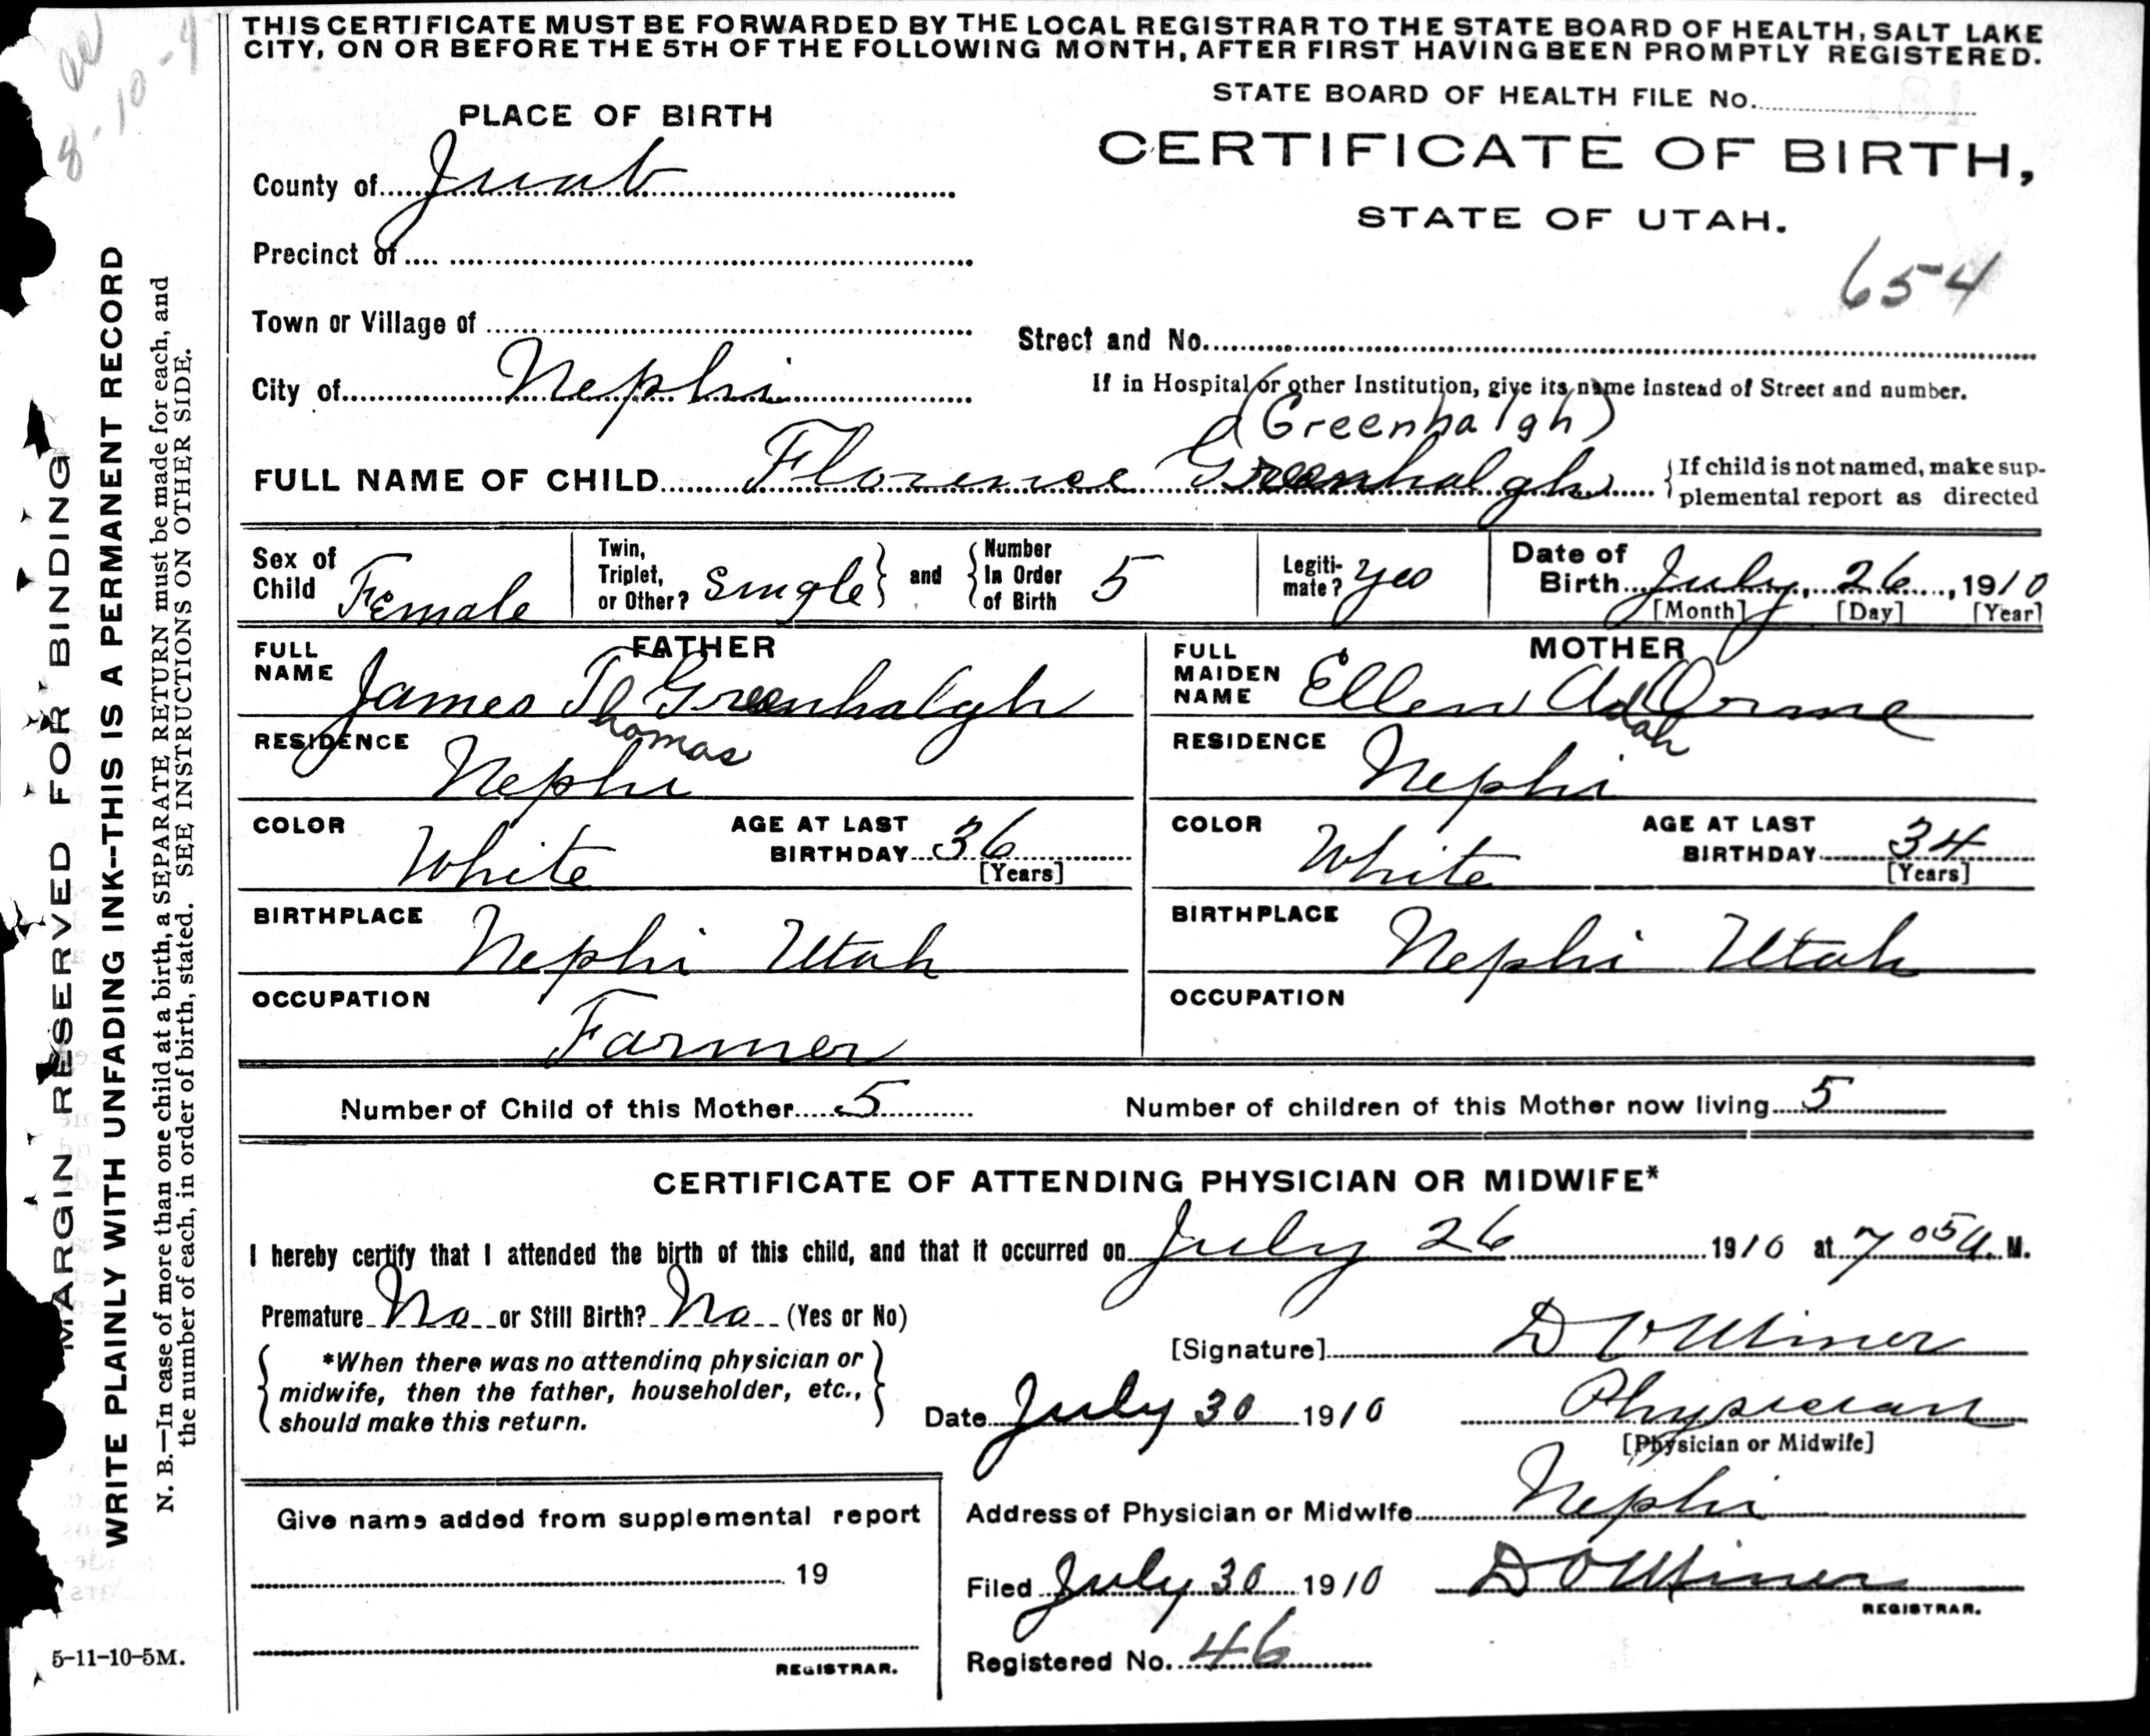 THIS CERTIFICATE MUST BE FORWARDED BY THE LOCAL REGISTRAR TO THE STATE BOARD OF HEALTH, SALT LAKE
CITY, ON OR BEFORE THE 5TH OF THE FOLLOWING MONTH, AFTER FIRST HAVING BEEN PROMPTLY REGISTERED.
8-10-4
STATE BOARD OF HEALTH FILE No.
PLACE OF BIRTH
CERTIFICATE OF BIRTH,
STATE OF UTAH.
County of Juab
Precinct of
654
Town or Village of
Street and No.
City of Nephi
If in Hospital or other Institution, give its name instead of Street and number.
(Greenhalgh)
FULL NAME OF CHILD Florence Greenhalgh
{If child is not named, make sup-
plemental report as directed
Sex of Child Female
Twin, Triplet, or Other? Single} and {Number In Order of Birth 5
Legiti-mate? yes
Date of Birth July, 26, 1910
[Month] [Day] [Year]
FATHER
FULL NAME James Th Greenhalgh
Thomas
RESIDENCE Nephi
COLOR White
AGE AT LAST BIRTHDAY 36
[Years]
BIRTHPLACE Nephi Utah
OCCUPATION Farmer
MOTHER
FULL MAIDEN NAME Ellen Adah Orme
RESIDENCE Nephi
COLOR White
AGE AT LAST BIRTHDAY 34
[Years]
BIRTHPLACE Nephi Utah
OCCUPATION
Number of Child of this Mother 5
Number of children of this Mother now living 5
CERTIFICATE OF ATTENDING PHYSICIAN OR MIDWIFE*
I hereby certify that I attended the birth of this child, and that it occurred on July 26 1910 at 7 05 a. M.
Premature No or Still Birth? No (Yes or No)
{*When there was no attending physician or
midwife, then the father, householder, etc.,
should make this return.}
[Signature] D O Miner
Date July 30 1910
Physician
[Physician or Midwife]
Address of Physician or Midwife Nephi
Filed July 30 1910 D O Miner
REGISTRAR.
Registered No. 46
Give name added from supplemental report
19
REGISTRAR.
MARGIN RESERVED FOR BINDING
WRITE PLAINLY WITH UNFADING INK--THIS IS A PERMANENT RECORD
N. B.—In case of more than one child at a birth, a SEPARATE RETURN must be made for each, and
the number of each, in order of birth, stated. SEE INSTRUCTIONS ON OTHER SIDE.
5-11-10-5M.